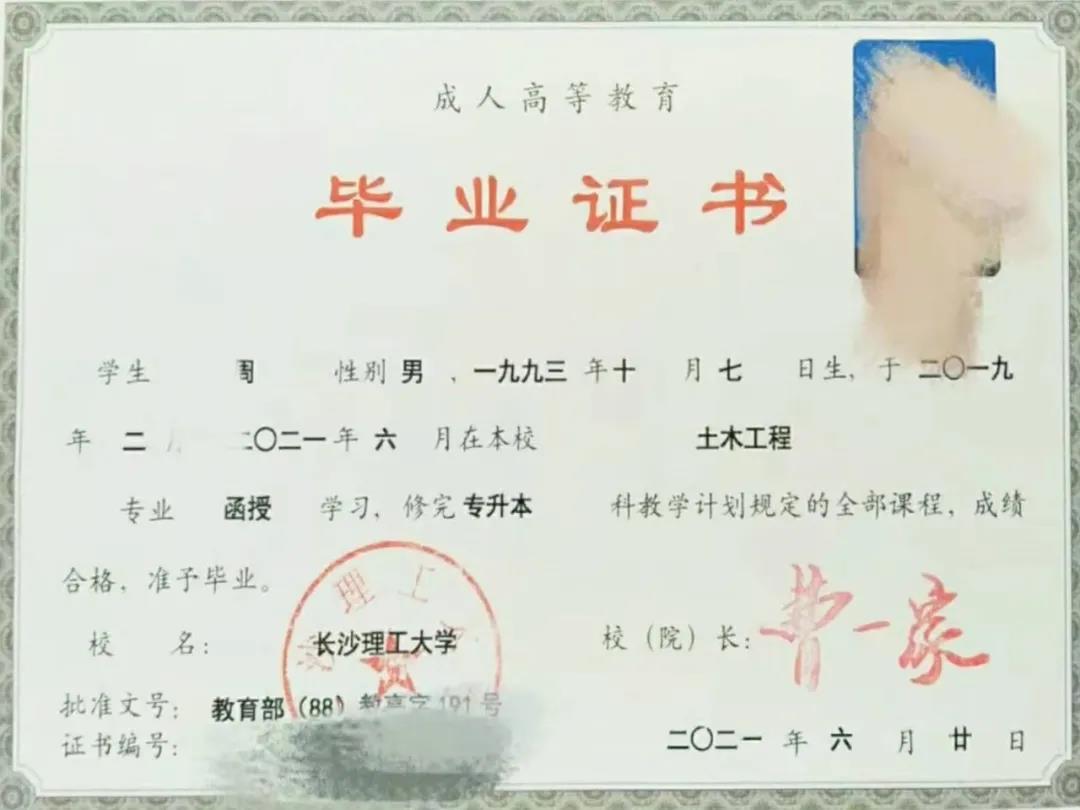 成人高等教育
毕业证书
学生 周 性别 男 ，一九九三 年 十 月 七 日生，于 二〇一九
年 二 月 二〇二一 年 六 月在本校 土木工程
专业 函授 学习，修完 专升本 科教学计划规定的全部课程，成绩
合格，准予毕业。
校 名： 长沙理工大学 校（院）长： 曹一家
沙理工大
批准文号： 教育部（88）教高字 191 号
证书编号： 二〇二一 年 六 月 廿 日